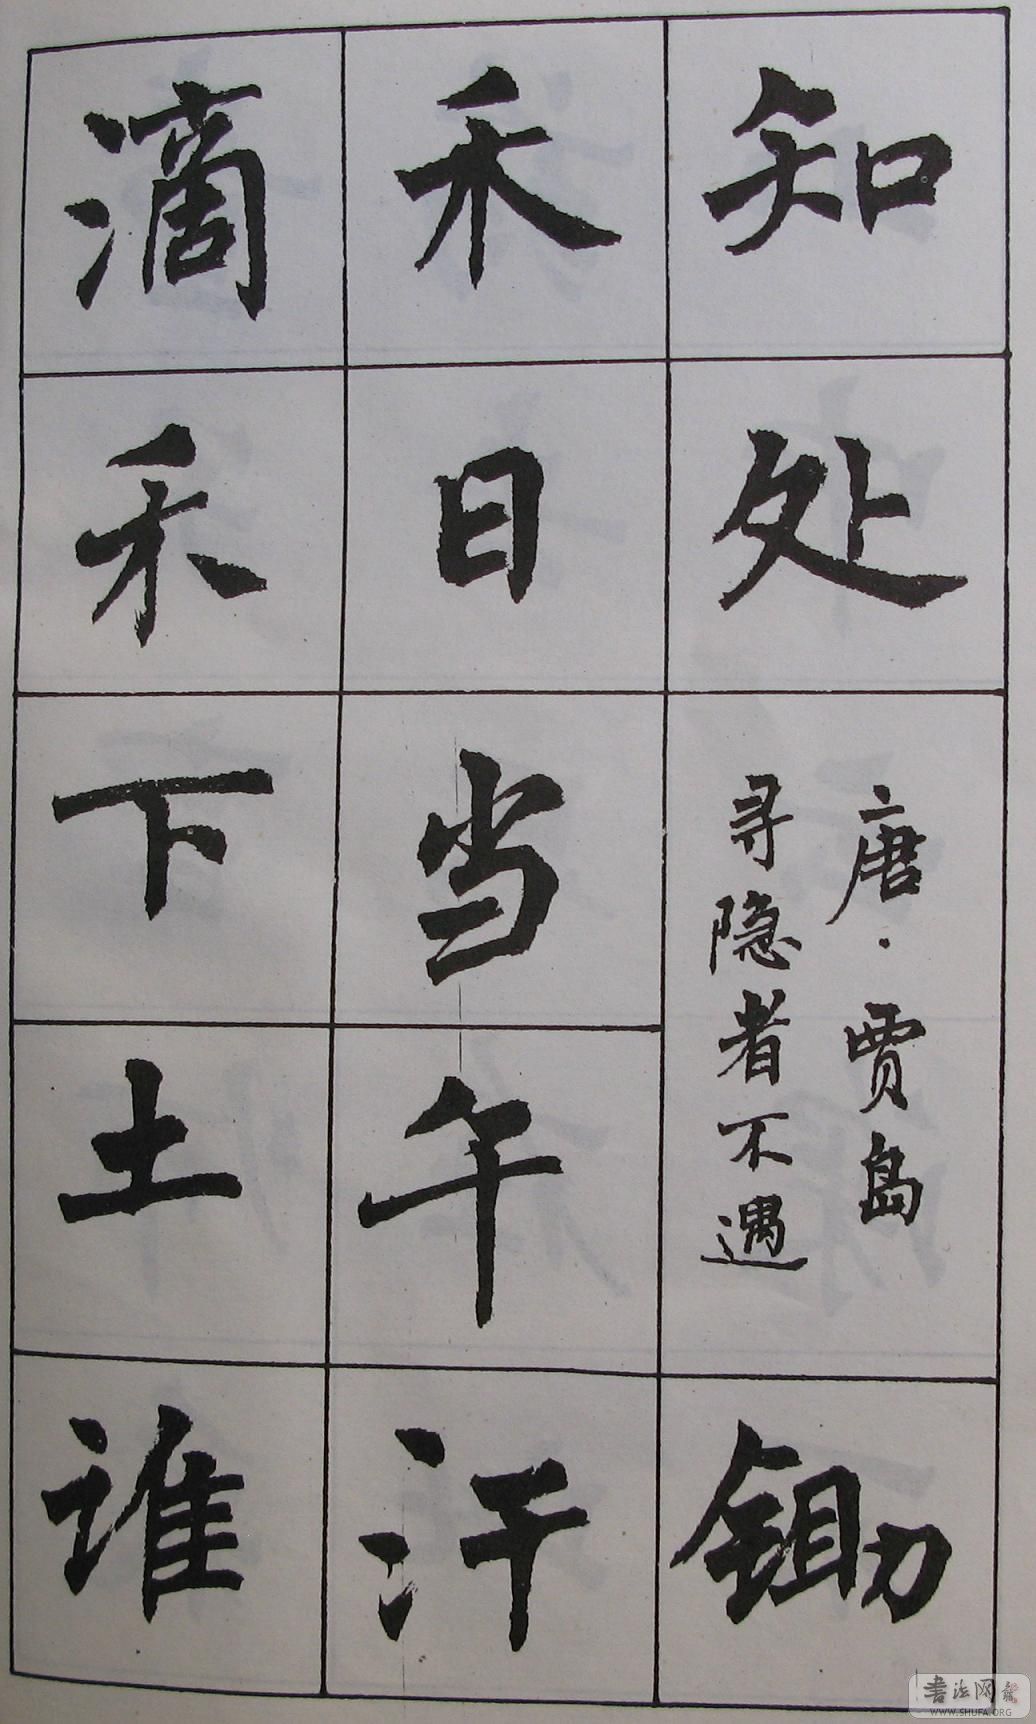 知处
唐·贾岛
寻隐者不遇
锄
禾日当午汗
滴禾下土谁
书法网
WWW.SHUFA.ORG